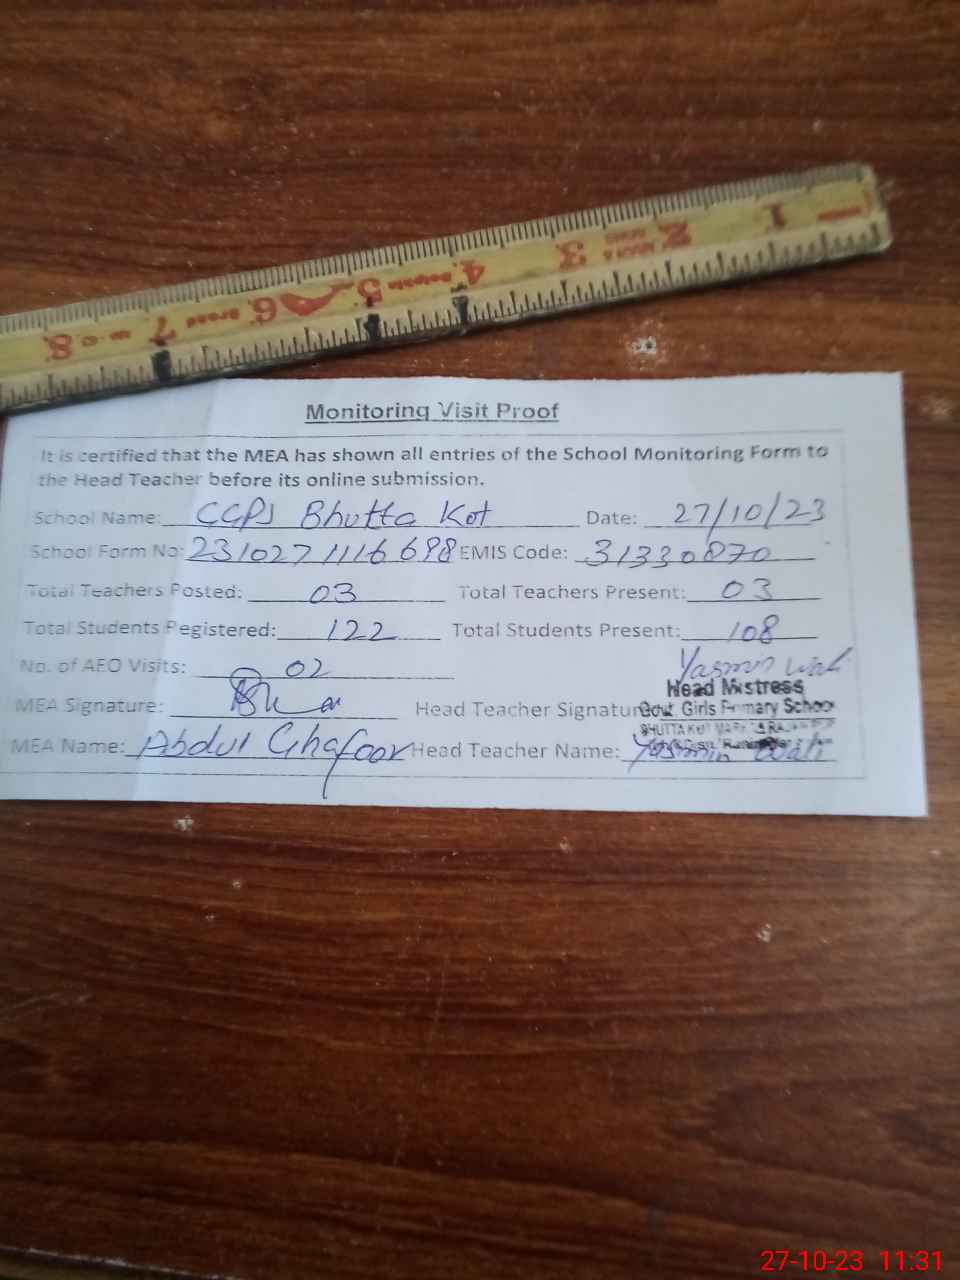 1 2 3 4 5 6 7 8
Monitoring Visit Proof
It is certified that the MEA has shown all entries of the School Monitoring Form to
the Head Teacher before its online submission.
School Name: GGPS Bhutta Kot Date: 27/10/23
School Form No: 2310271116698 EMIS Code: 31330870
Total Teachers Posted: 03 Total Teachers Present: 03
Total Students Registered: 122 Total Students Present: 108
No. of AEO Visits: 02
Yasmin Wali
Head Mistress
MEA Signature: Head Teacher Signature Govt Girls Primary School
BHUTTA KOT
MEA Name: Abdul Ghafoor Head Teacher Name: Yasmin Wali
27-10-23 11:31